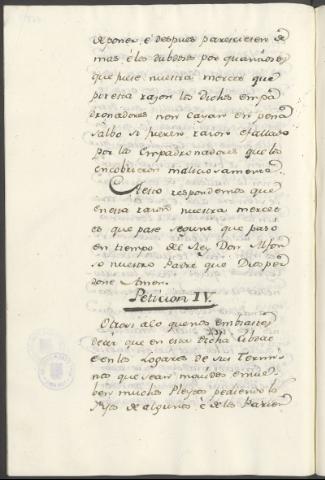 deponer, é despues parescieren de
mas é los dubdosos por quantiosos
que fuese nuestra merced que
por esta razon los dichos empa
dronadores non cayan en pena
salbo si fuere razon é fallado
por los Empadronadores que los
encobrieron maliciosamente.
Aesto respondemos que
en esta razon nuestra merced
es que pase segunt que paso
en tiempo del Rey Don Alfon
so nuestro Padre que Dios per
done Amen.
Peticion IV.
Otrosi alo que nos embiastes
decir que en esa Dicha Cibdad
é en los Logares de sus Termi-
nos que sean movidos é mue
ben muchos Pleytos pediendo los
fijos de algunos é de los Parien